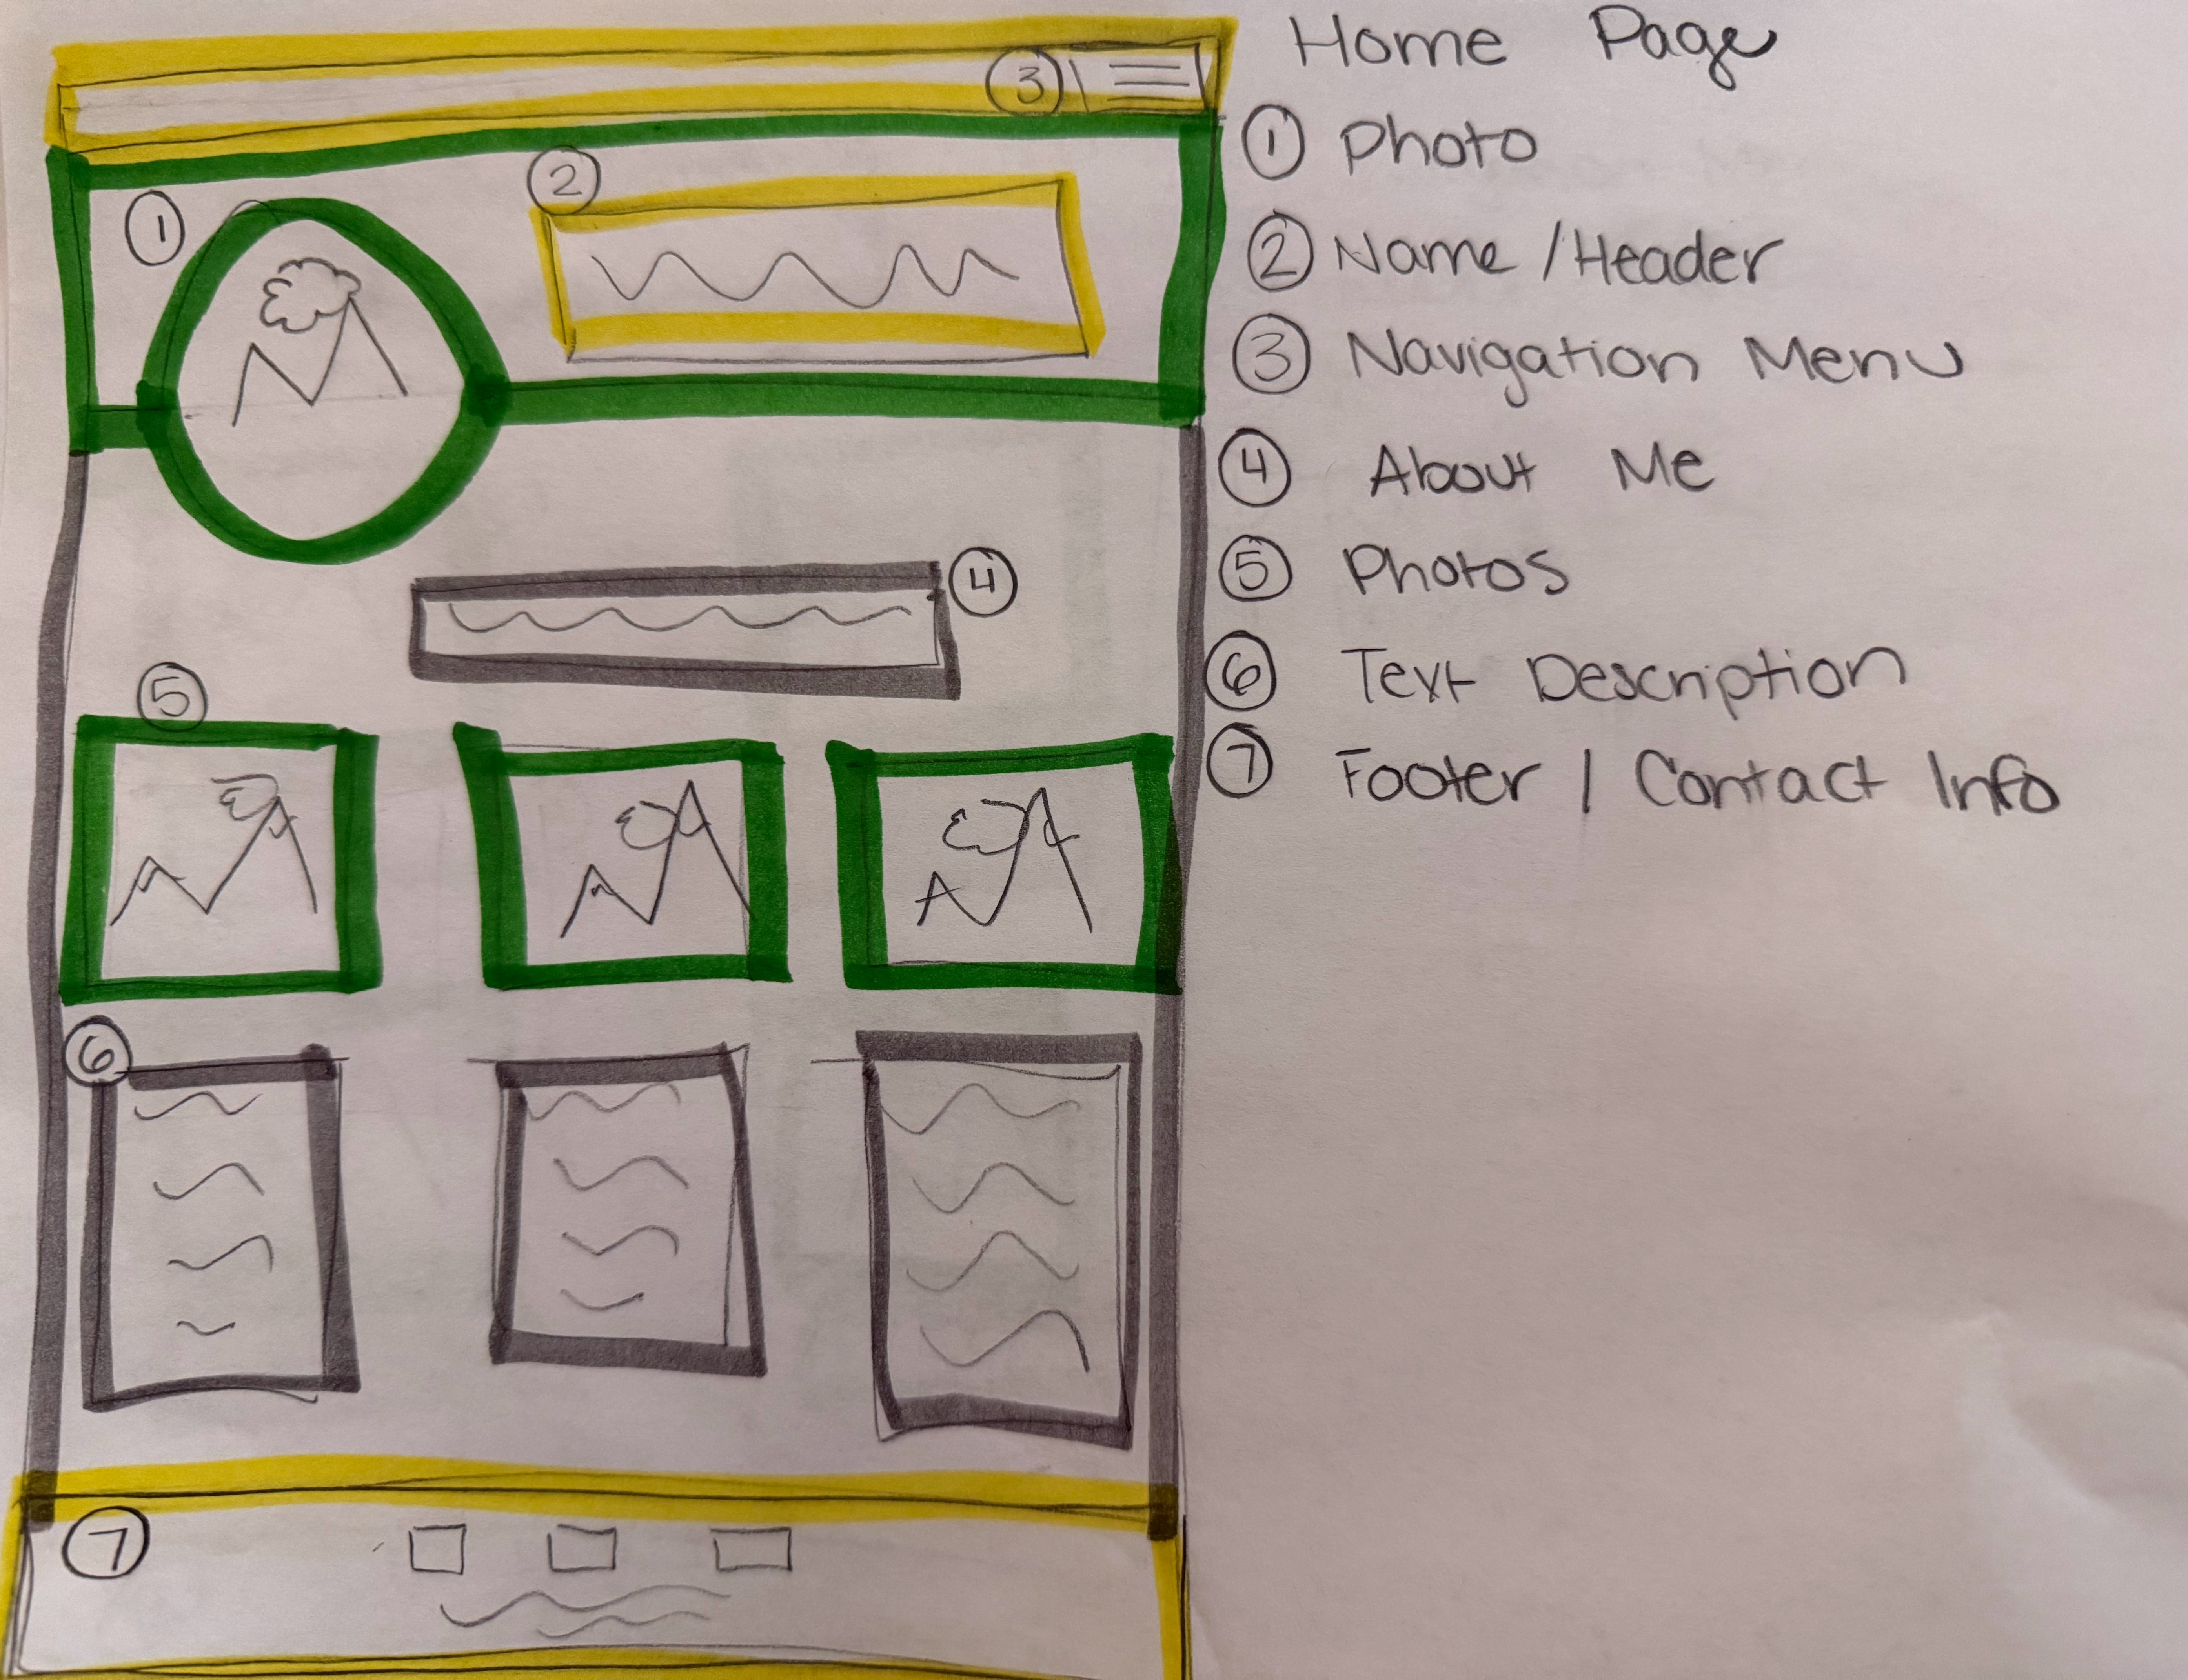 Home Page
① Photo
② Name / Header
③ Navigation Menu
④ About Me
⑤ Photos
⑥ Text Description
⑦ Footer | Contact Info
③
②
①
④
⑤
⑥
⑦